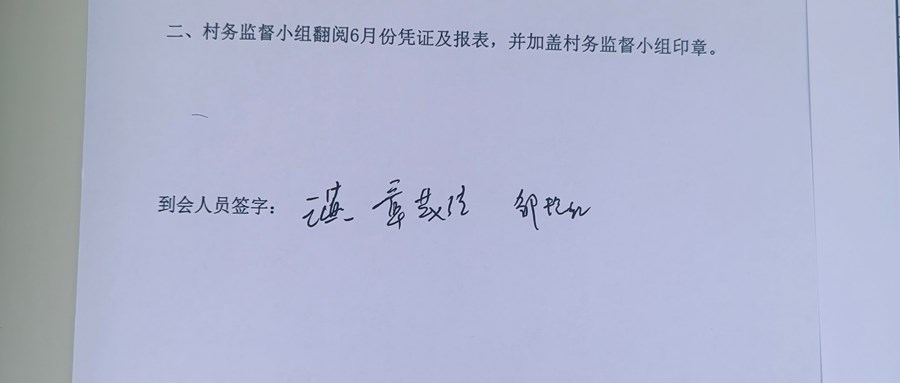 二、村务监督小组翻阅6月份凭证及报表，并加盖村务监督小组印章。
到会人员签字：